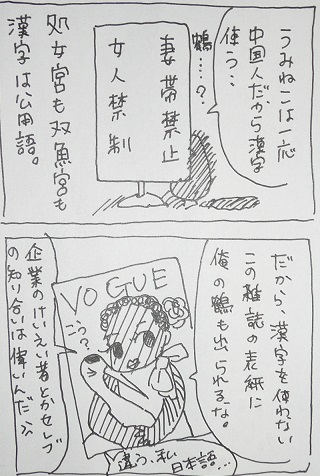 うみねこは一応
中国人だから漢字
使う…
鶴……?
妻帯禁止
女人禁制
処女宮も双魚宮も
漢字は公用語。
だから、漢字を使わない
この雑誌の表紙に
俺の鶴も出られるな。
VOGUE
こう?
企業のけいえい者とかセレブ
の知り合いは偉いんだ
違う、私
日本語…